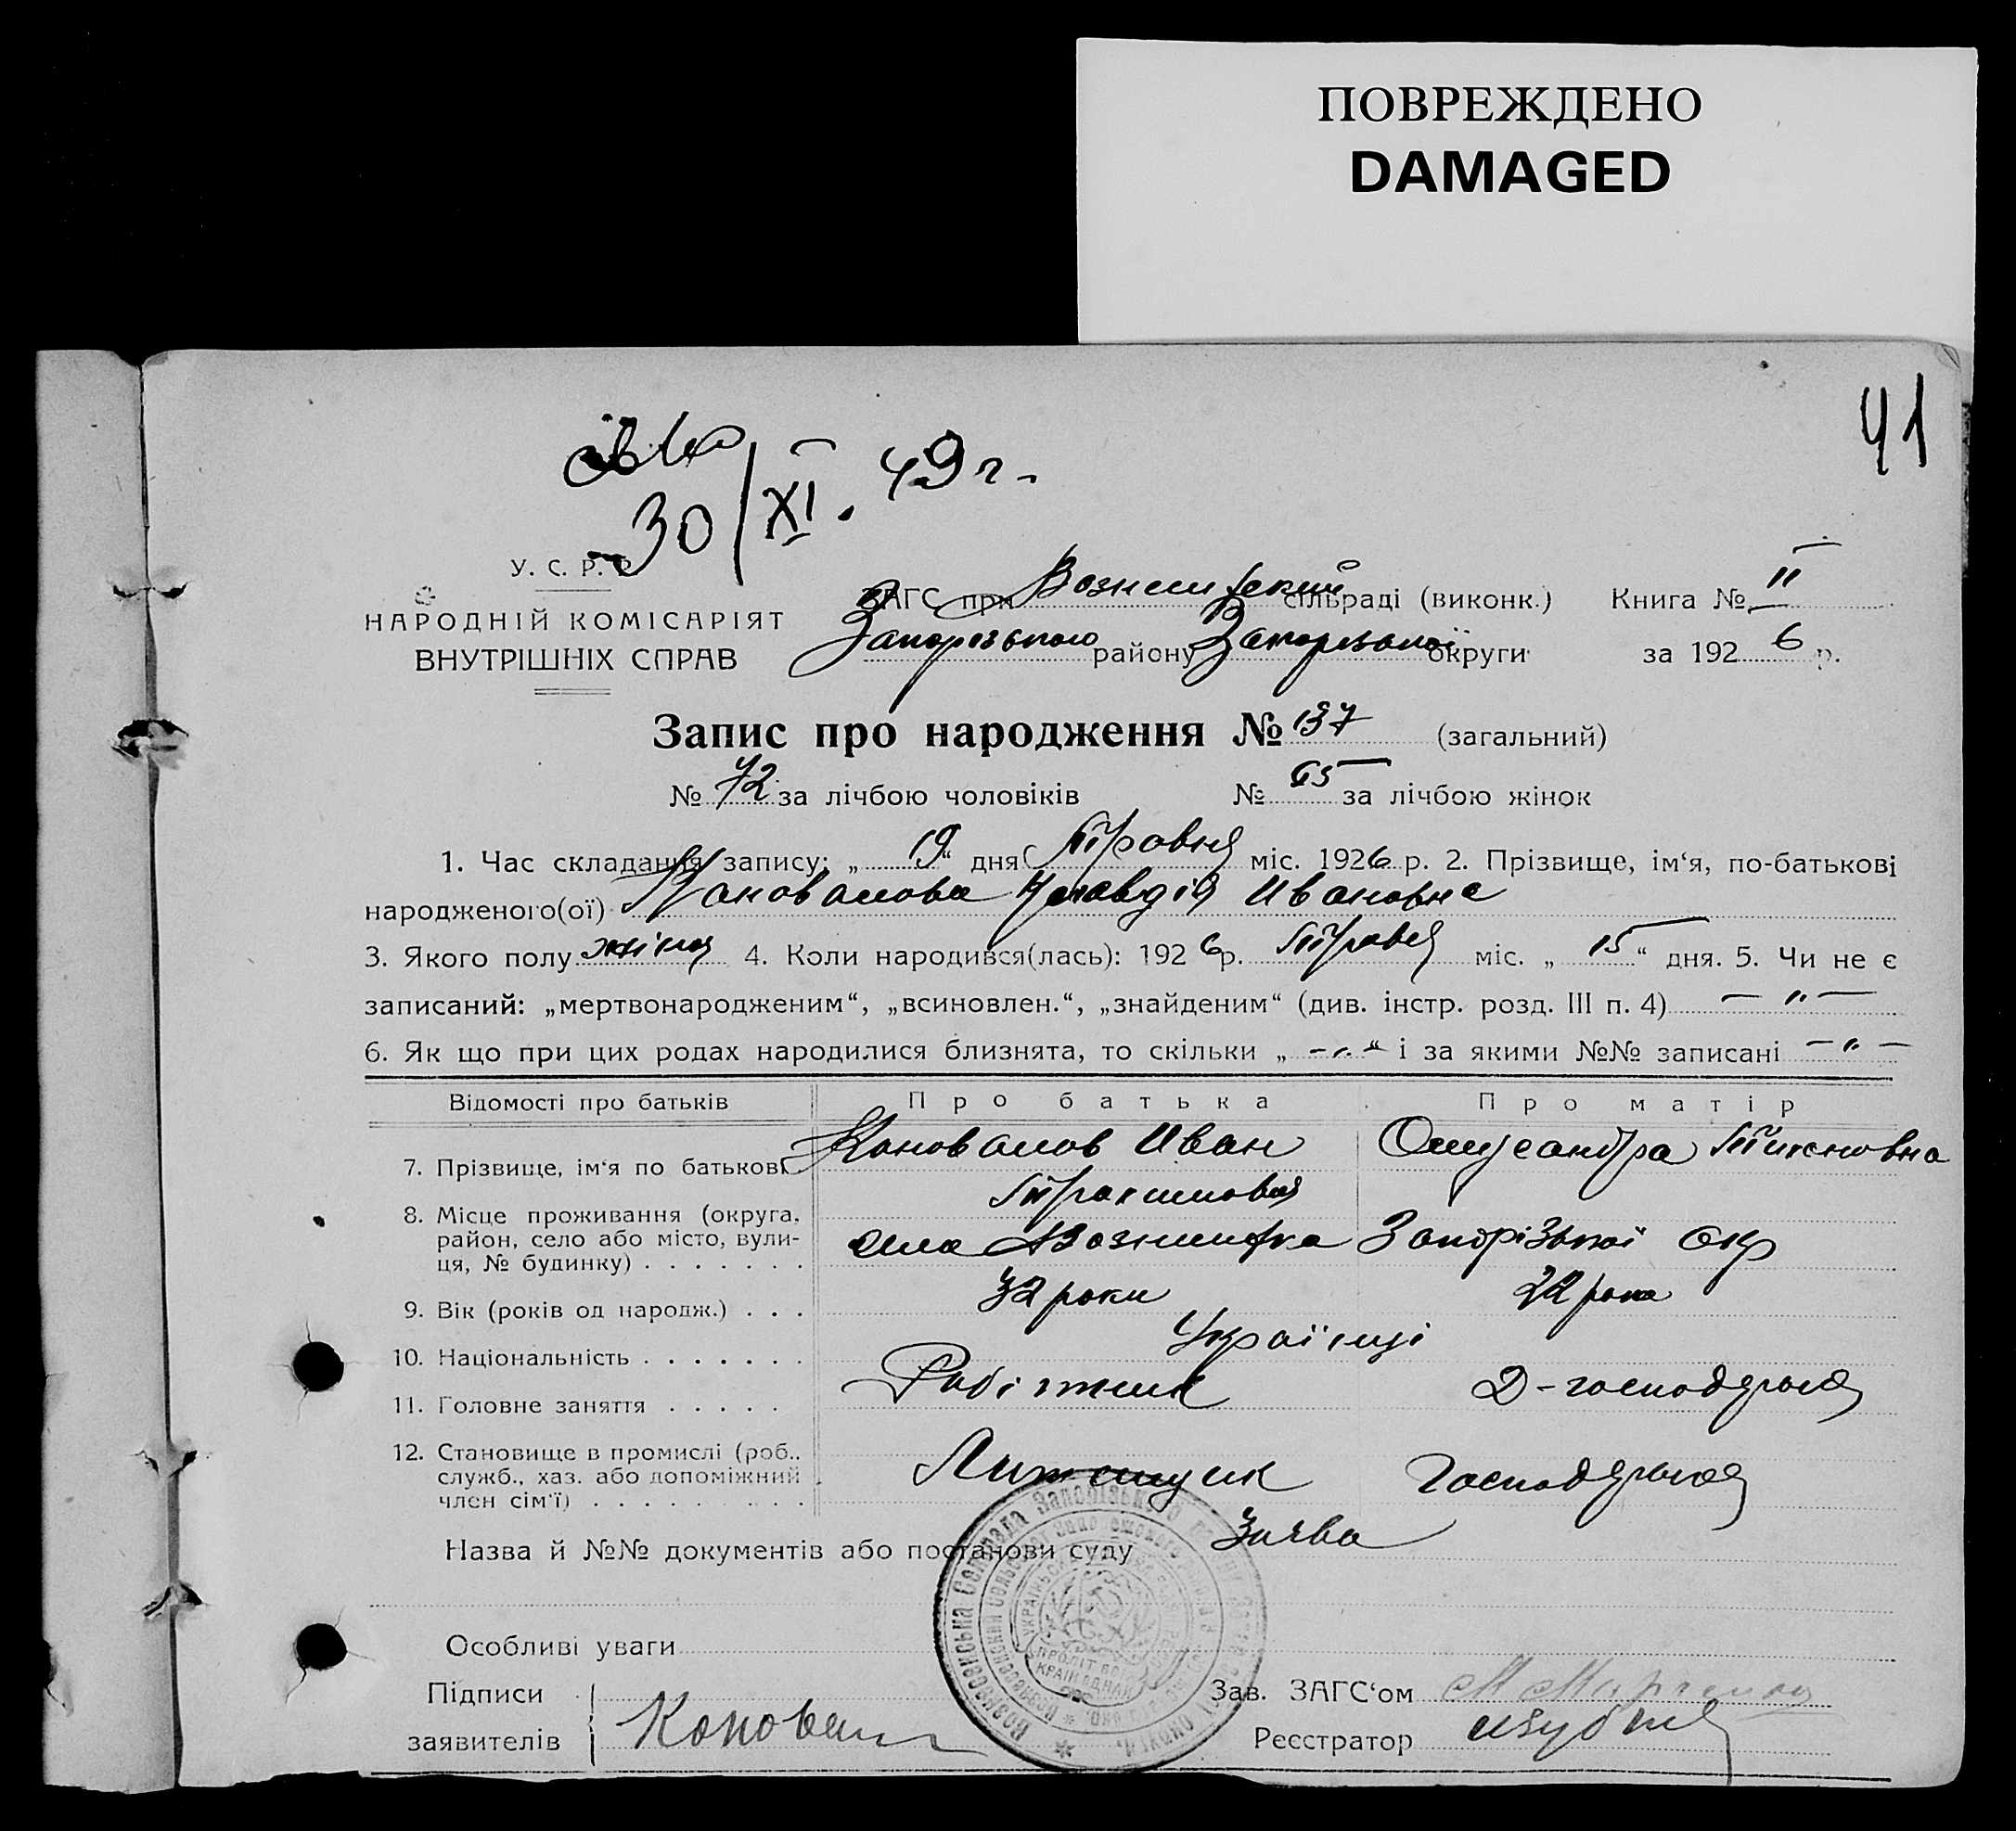 ПОВРЕЖДЕНО
DAMAGED
41
30/XI. 49 г.
У. С. Р. Р.
НАРОДНІЙ КОМІСАРІЯТ
ВНУТРІШНІХ СПРАВ
ЗАГС при сільраді (виконк.) Книга № II
Запорізького району Запорізької округи за 1926 р.
Запис про народження № 137 (загальний)
№ 72 за лічбою чоловіків № 65 за лічбою жінок
1. Час складання запису: „ 19 “ дня Травня міс. 1926 р. 2. Прізвище, ім‘я, по-батькові
народженого(ої) Коновалова Клавдія Ивановна
3. Якого полу жіноч 4. Коли народився(лась): 1926 р. Травня міс. „ 15 “ дня. 5. Чи не є
записаний: „мертвонародженим“, „всиновлен.“, „знайденим“ (див. інстр. розд. III п. 4) — „ —
6. Як що при цих родах народилися близнята, то скільки „ — „ — “ і за якими №№ записані — „ —
Відомості про батьків Про батька Про матір
7. Прізвище, ім‘я по батькові Коновалов Иван Олександра
8. Місце проживання (округа,
район, село або місто, вули-
ця, № будинку) . . . . . . . село Вознесенка Запорізької окр
9. Вік (років од народж.) . . . 32 роки 22 роки
10. Національність . . . . . . . Українці
11. Головне заняття . . . . . Робітник Д-господарка
12. Становище в промислі (роб.,
служб., хаз. або допоміжний
член сім‘ї) . . . . . . . . . Господарка
Назва й №№ документів або постанови суду Заява
Особливі уваги
Підписи
заявителів Коновал
Зав. ЗАГС‘ом
Реєстратор
Вознесенська Сельрада Запорізького району